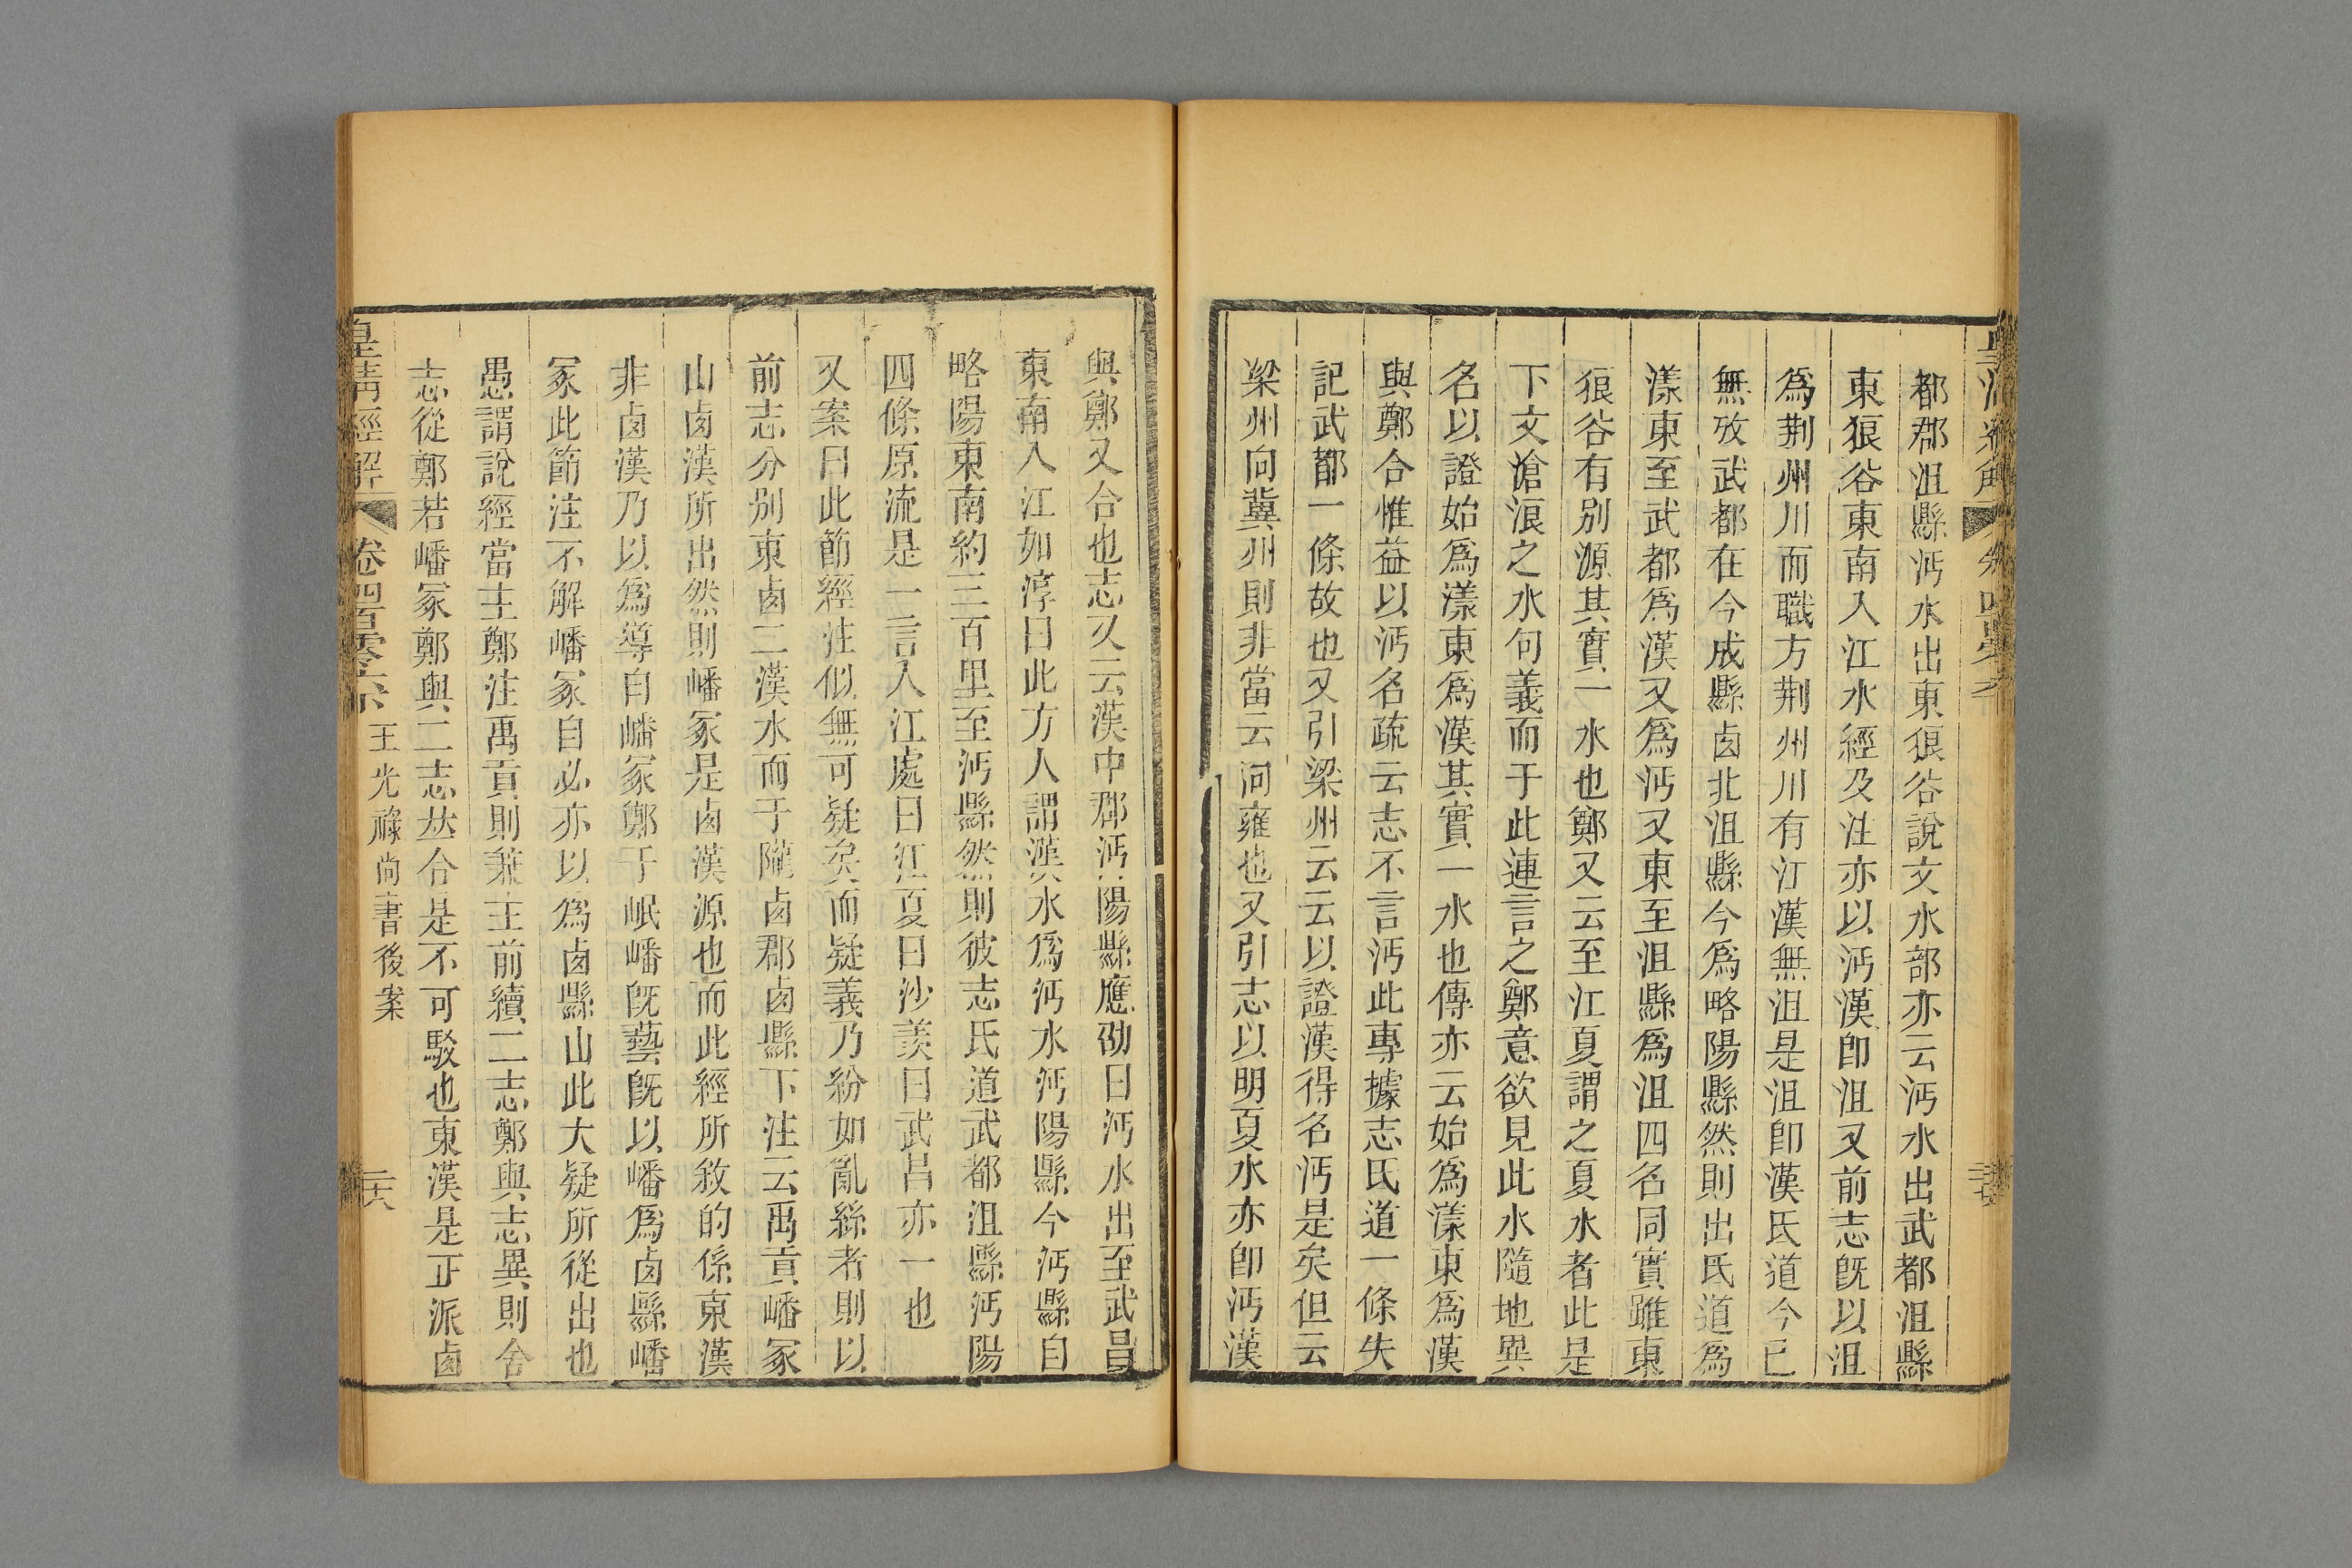 都郡沮縣沔水出東狼谷說文水部亦云沔水出武都沮縣
東狼谷東南入江水經及注亦以沔漢卽沮又前志旣以沮
爲荆州川而職方荆州川有江漢無沮是沮卽漢氐道今已
無攷武都在今成縣卤北沮縣今爲略陽縣然則出氐道爲
漾東至武都爲漢又爲沔又東至沮縣爲沮四名同實雖東
狼谷有别源其實一水也鄭又云至江夏謂之夏水者此是
下文滄浪之水句義而于此連言之鄭意欲見此水隨地異
名以證始爲漾東爲漢其實一水也傳亦云始爲漾東爲漢
與鄭合惟益以沔名疏云志不言沔此專據志氐道一條失
記武都一條故也又引梁州云云以證漢得名沔是矣但云
梁州向冀州則非當云向雍也又引志以明夏水亦卽沔漢
與鄭又合也志又云漢中郡沔陽縣應劭曰沔水出至武昌
東南入江如淳曰此方人謂漢水爲沔水沔陽縣今沔縣自
略陽東南約三百里至沔縣然則彼志氐道武都沮縣沔陽
四條原流是一言入江處曰江夏曰沙羨曰武昌亦一也
又案曰此節經注似無可疑矣而疑義乃紛如亂絲者則以
前志分别東卤二漢水而于隴卤郡卤縣下注云禹貢嶓冢
山卤漢所出然則嶓冢是卤漢源也而此經所敘的係東漢
非卤漢乃以爲導自嶓冢鄭于岷嶓旣藝旣以嶓爲卤縣嶓
冢此節注不解嶓冢自必亦以爲卤縣山此大疑所從出也
愚謂說經當主鄭注禹貢則兼主前續二志鄭與志異則舍
志從鄭若嶓冢鄭與二志竝合是不可駁也東漢是正派卤
皇清經解 卷四百零六 王光祿尚書後案 二十六